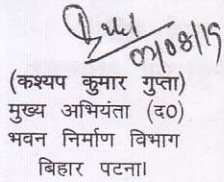 07/08/19
(कश्यप कुमार गुप्ता)
मुख्य अभियंता (द०)
भवन निर्माण विभाग
बिहार पटना।